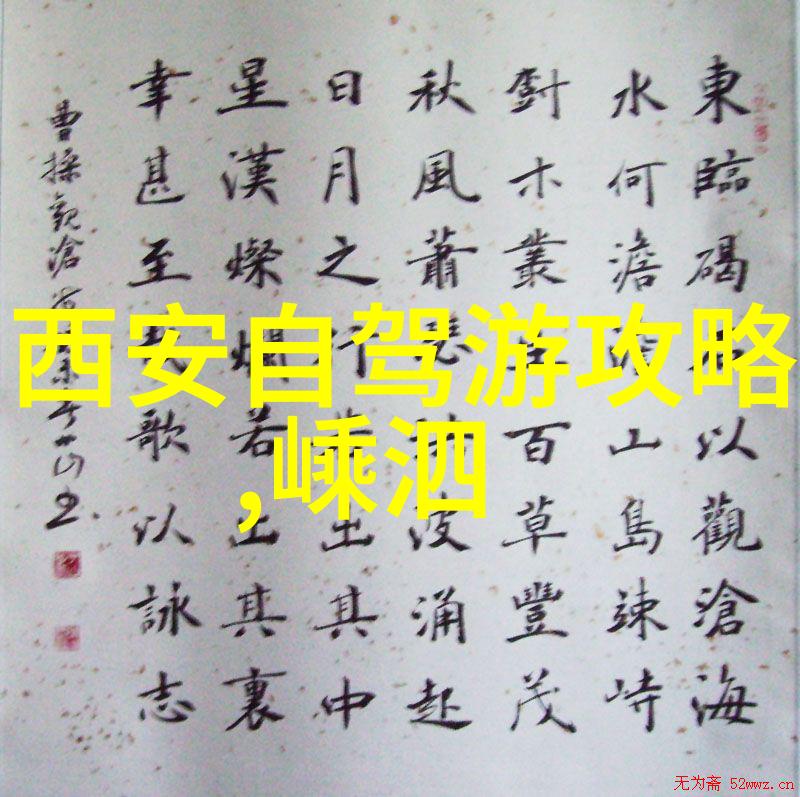 東臨碣石以觀滄海
水何澹澹山島竦峙
木叢生百草豐茂
秋風蕭瑟洪波涌起
日月之行若出其中
星漢燦爛若出其裏
幸甚至哉歌以詠志
曹操觀滄海
西安自驾游攻略
,嵊泗
无为斋 52wwz.cn